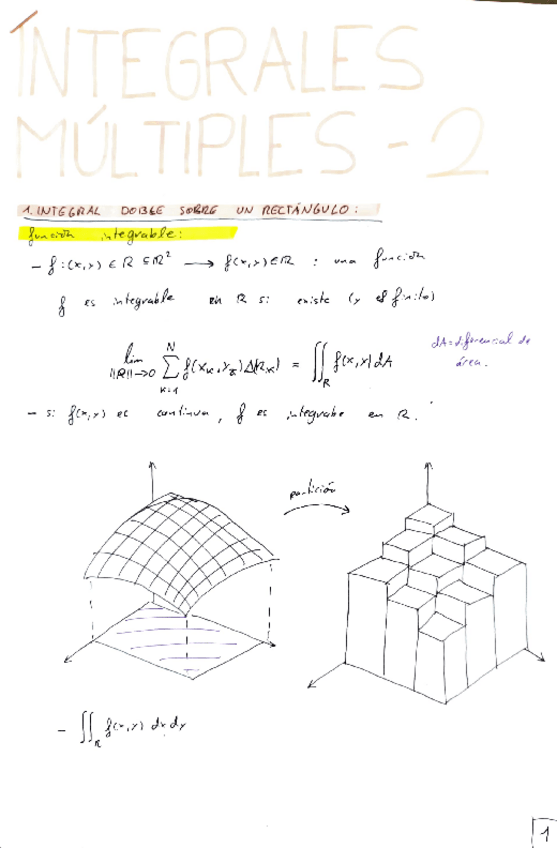 INTEGRALES
MÚLTIPLES - 2
1. INTEGRAL DOBLE SOBRE UN RECTÁNGULO:
función integrable:
- f:(x,y) ∈ R ⊆ ℝ² → f(x,y) ∈ ℝ : una función
f es integrable en R si existe (y es finito)
lim ||R||→0 ∑ K=1 N f(xₖ,yₖ) Δ(Rₖ) = ∬_R f(x,y) dA
dA = diferencial de
área.
- si f(x,y) es continua, f es integrabe en R.
partición
- ∬_R f(x,y) dx dy
1